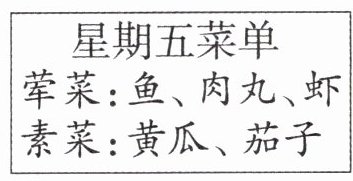 星期五菜单
荤菜:鱼、肉丸、虾
素菜:黄瓜、茄子